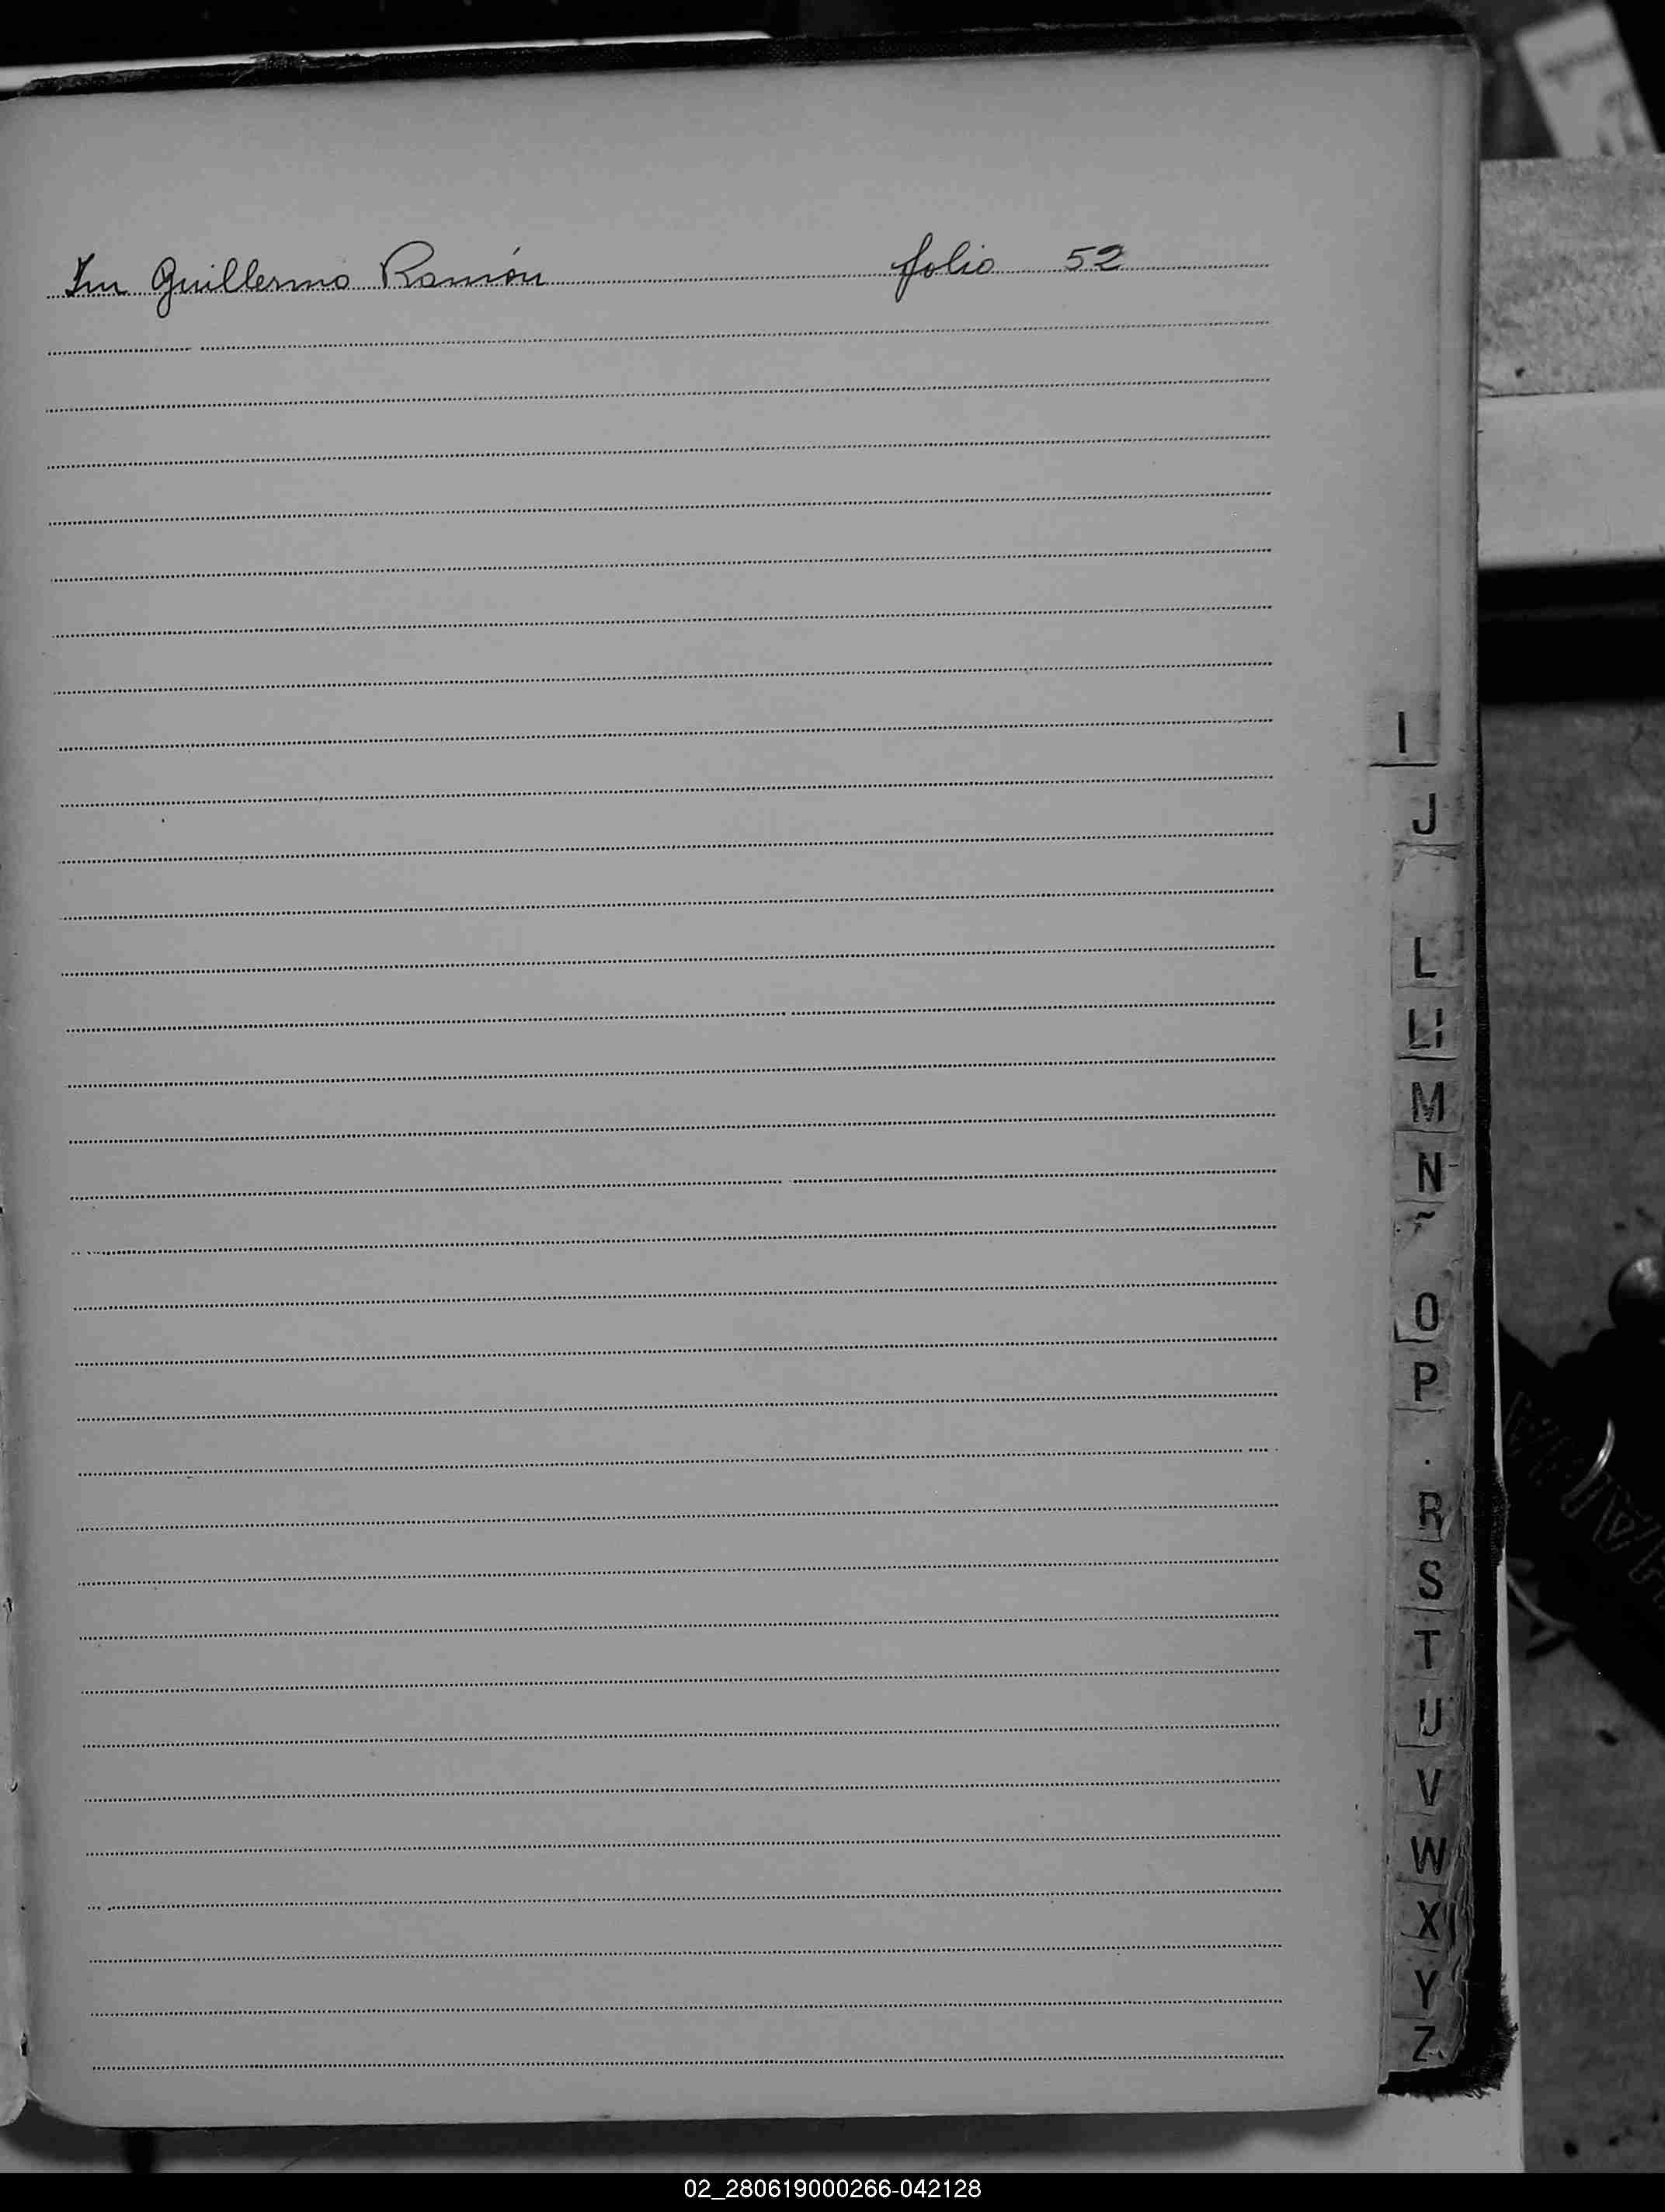 Im Guillermo Ramón folio 52
I
J
L
Ll
M
N
O
P
R
S
T
U
V
W
X
Y
Z
02_280619000266-042128